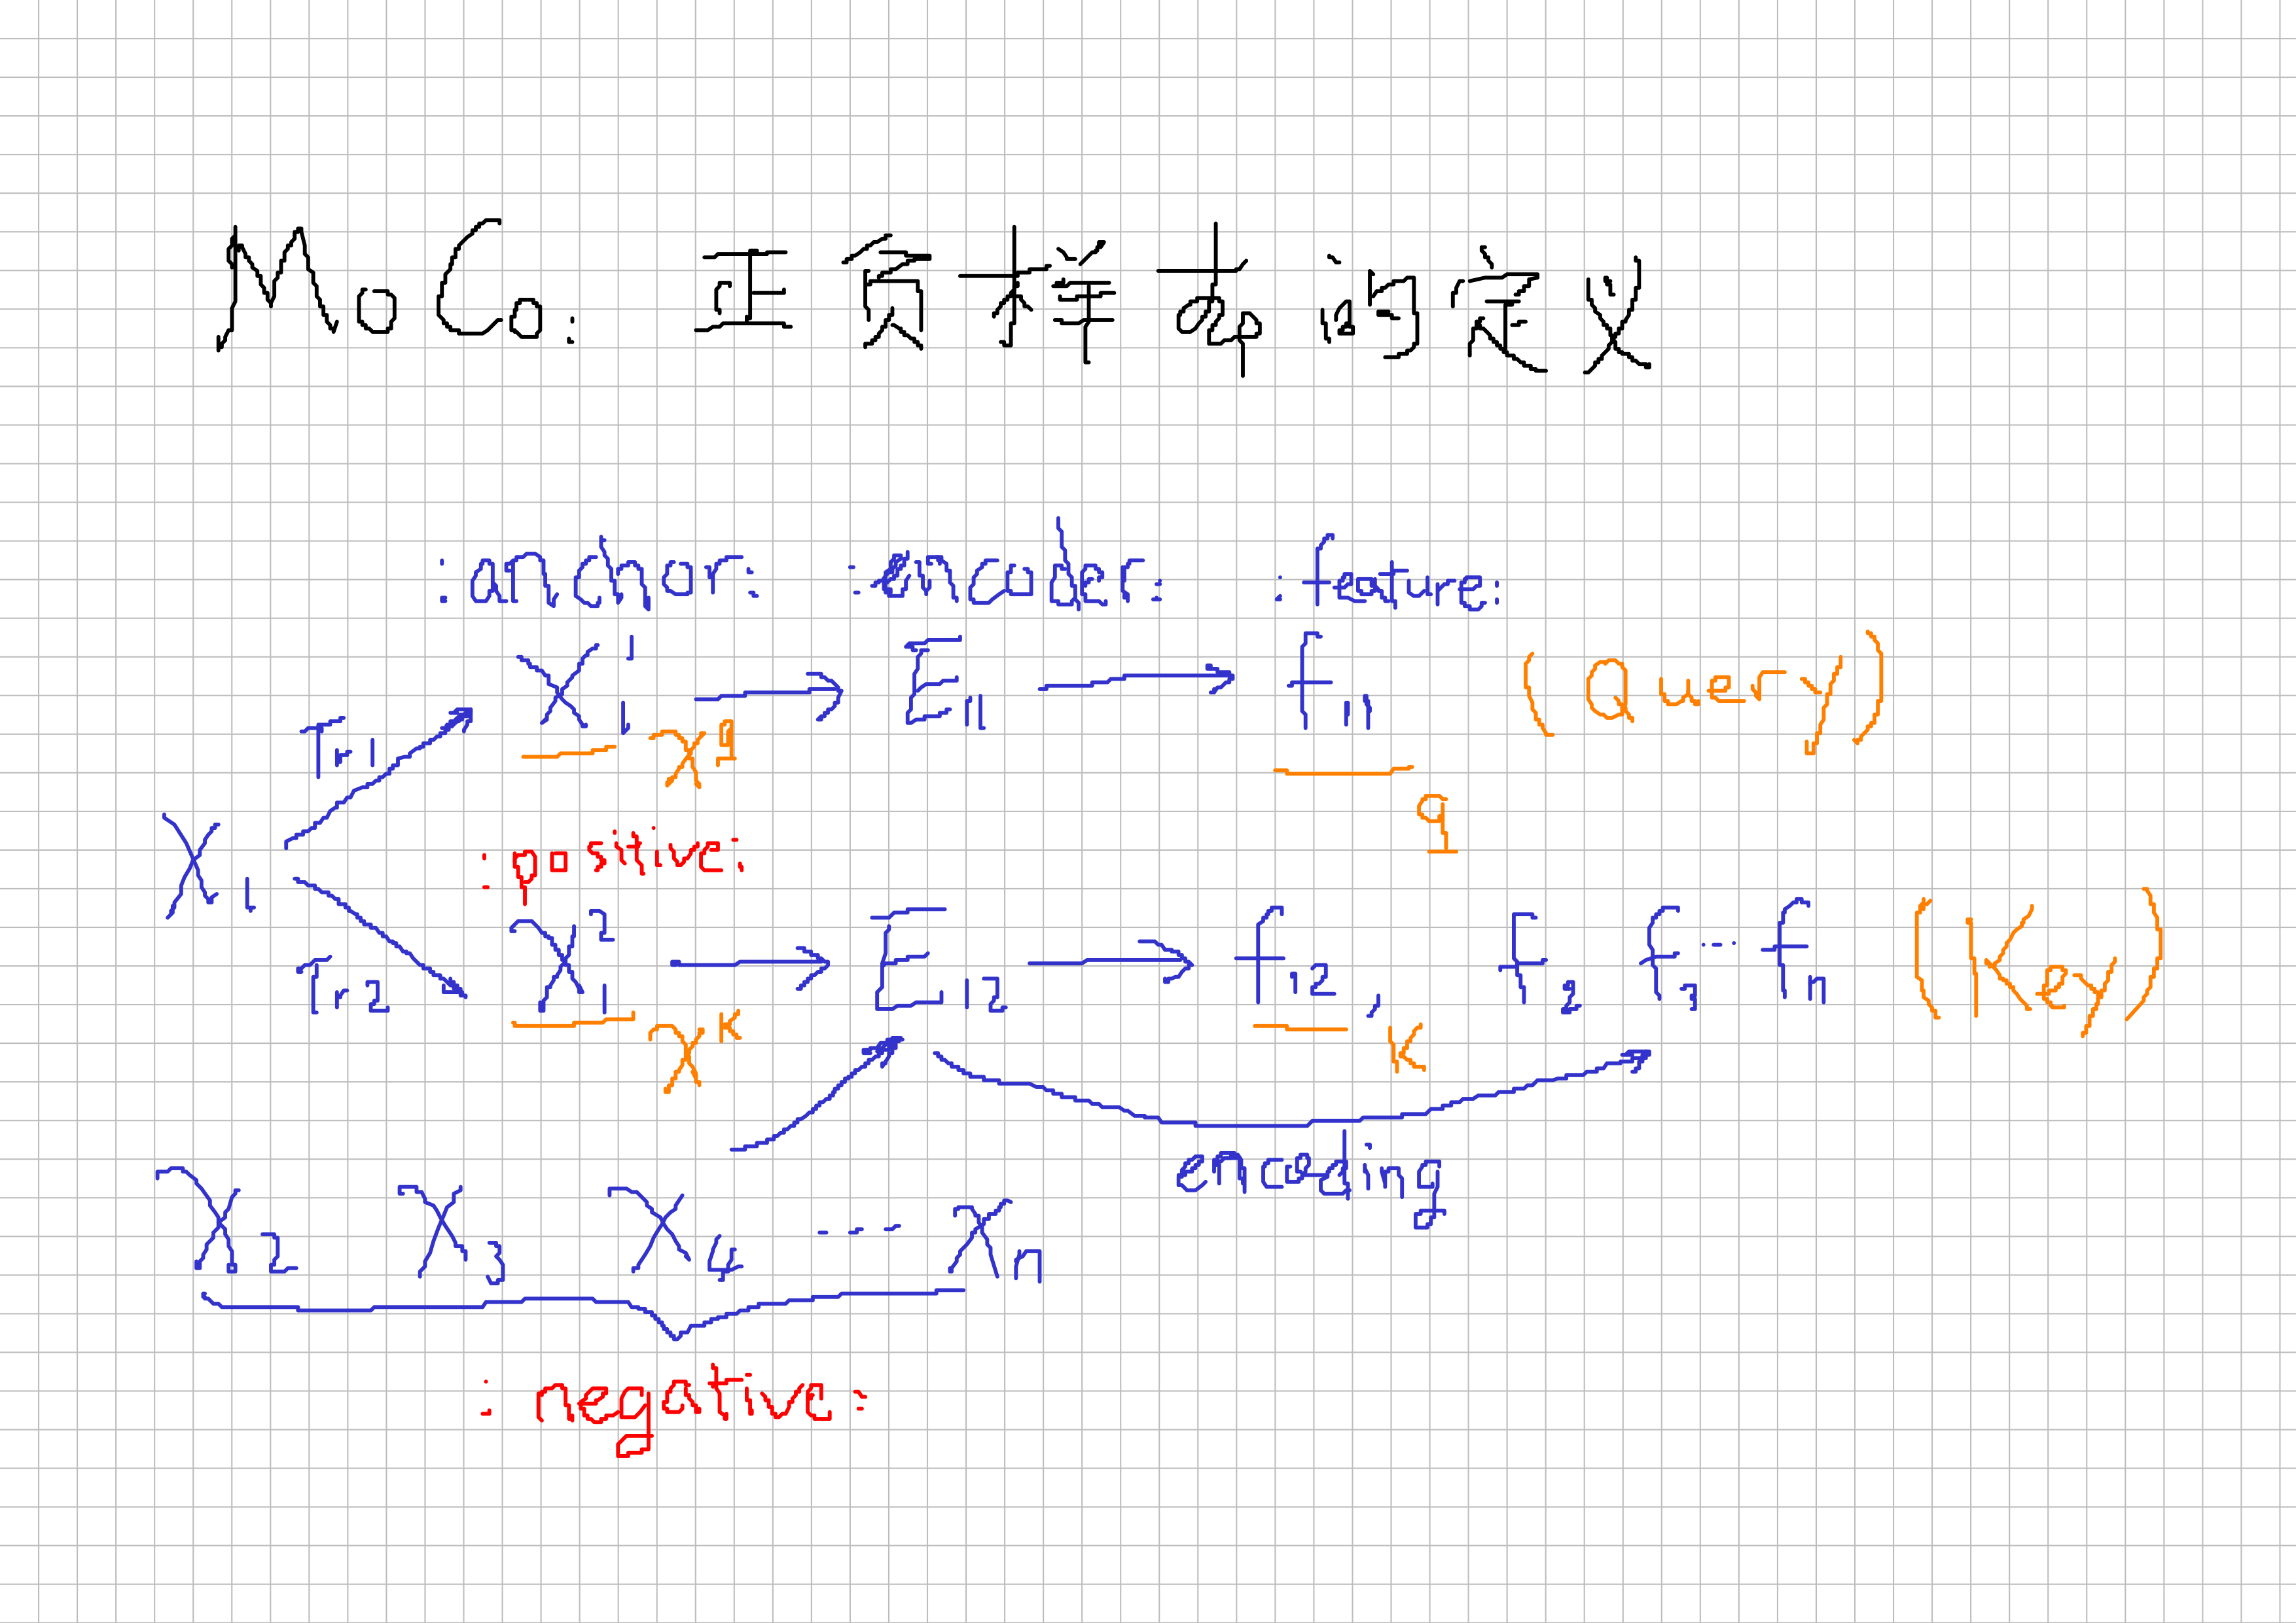 MoCo: 正负样本的定义
:anchor: :encoder: :feature:
Tr1 X₁¹ → E₁₁ → f₁₁ (Query)
x^q q
X₁
:positive:
Tr2 X₁² → E₁₂ → f₁₂, f₂ f₃ ··· fn (Key)
x^k k
encoding
X₂ X₃ X₄ ··· Xn
:negative: